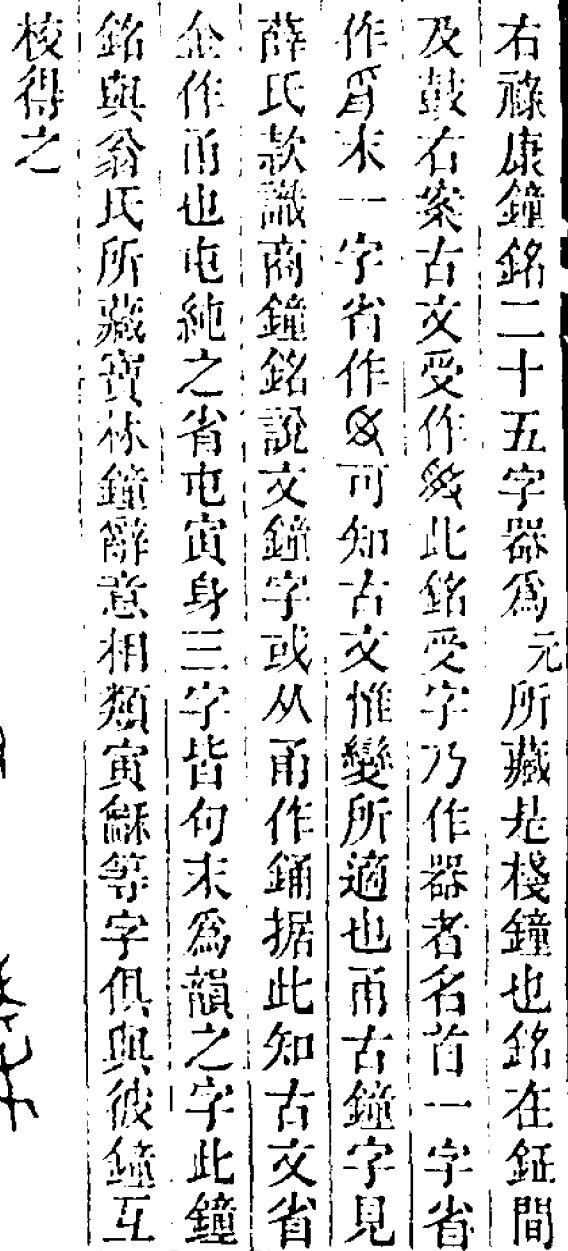 右祿康鐘銘二十五字器爲元所藏是棧鐘也銘在鉦間
及鼓右案古文受作𤔲此銘受字乃作器者名首一字省
作𤔔末一字省作可知古文惟變所適也甬古鐘字見
薛氏款識商鐘銘說文鐘字或从甬作銿据此知古文省
金作甬也屯純之省屯寅身三字皆句末爲韻之字此鐘
銘與翁氏所藏寶林鐘辭意相類寅龢等字俱與彼鐘互
核得之